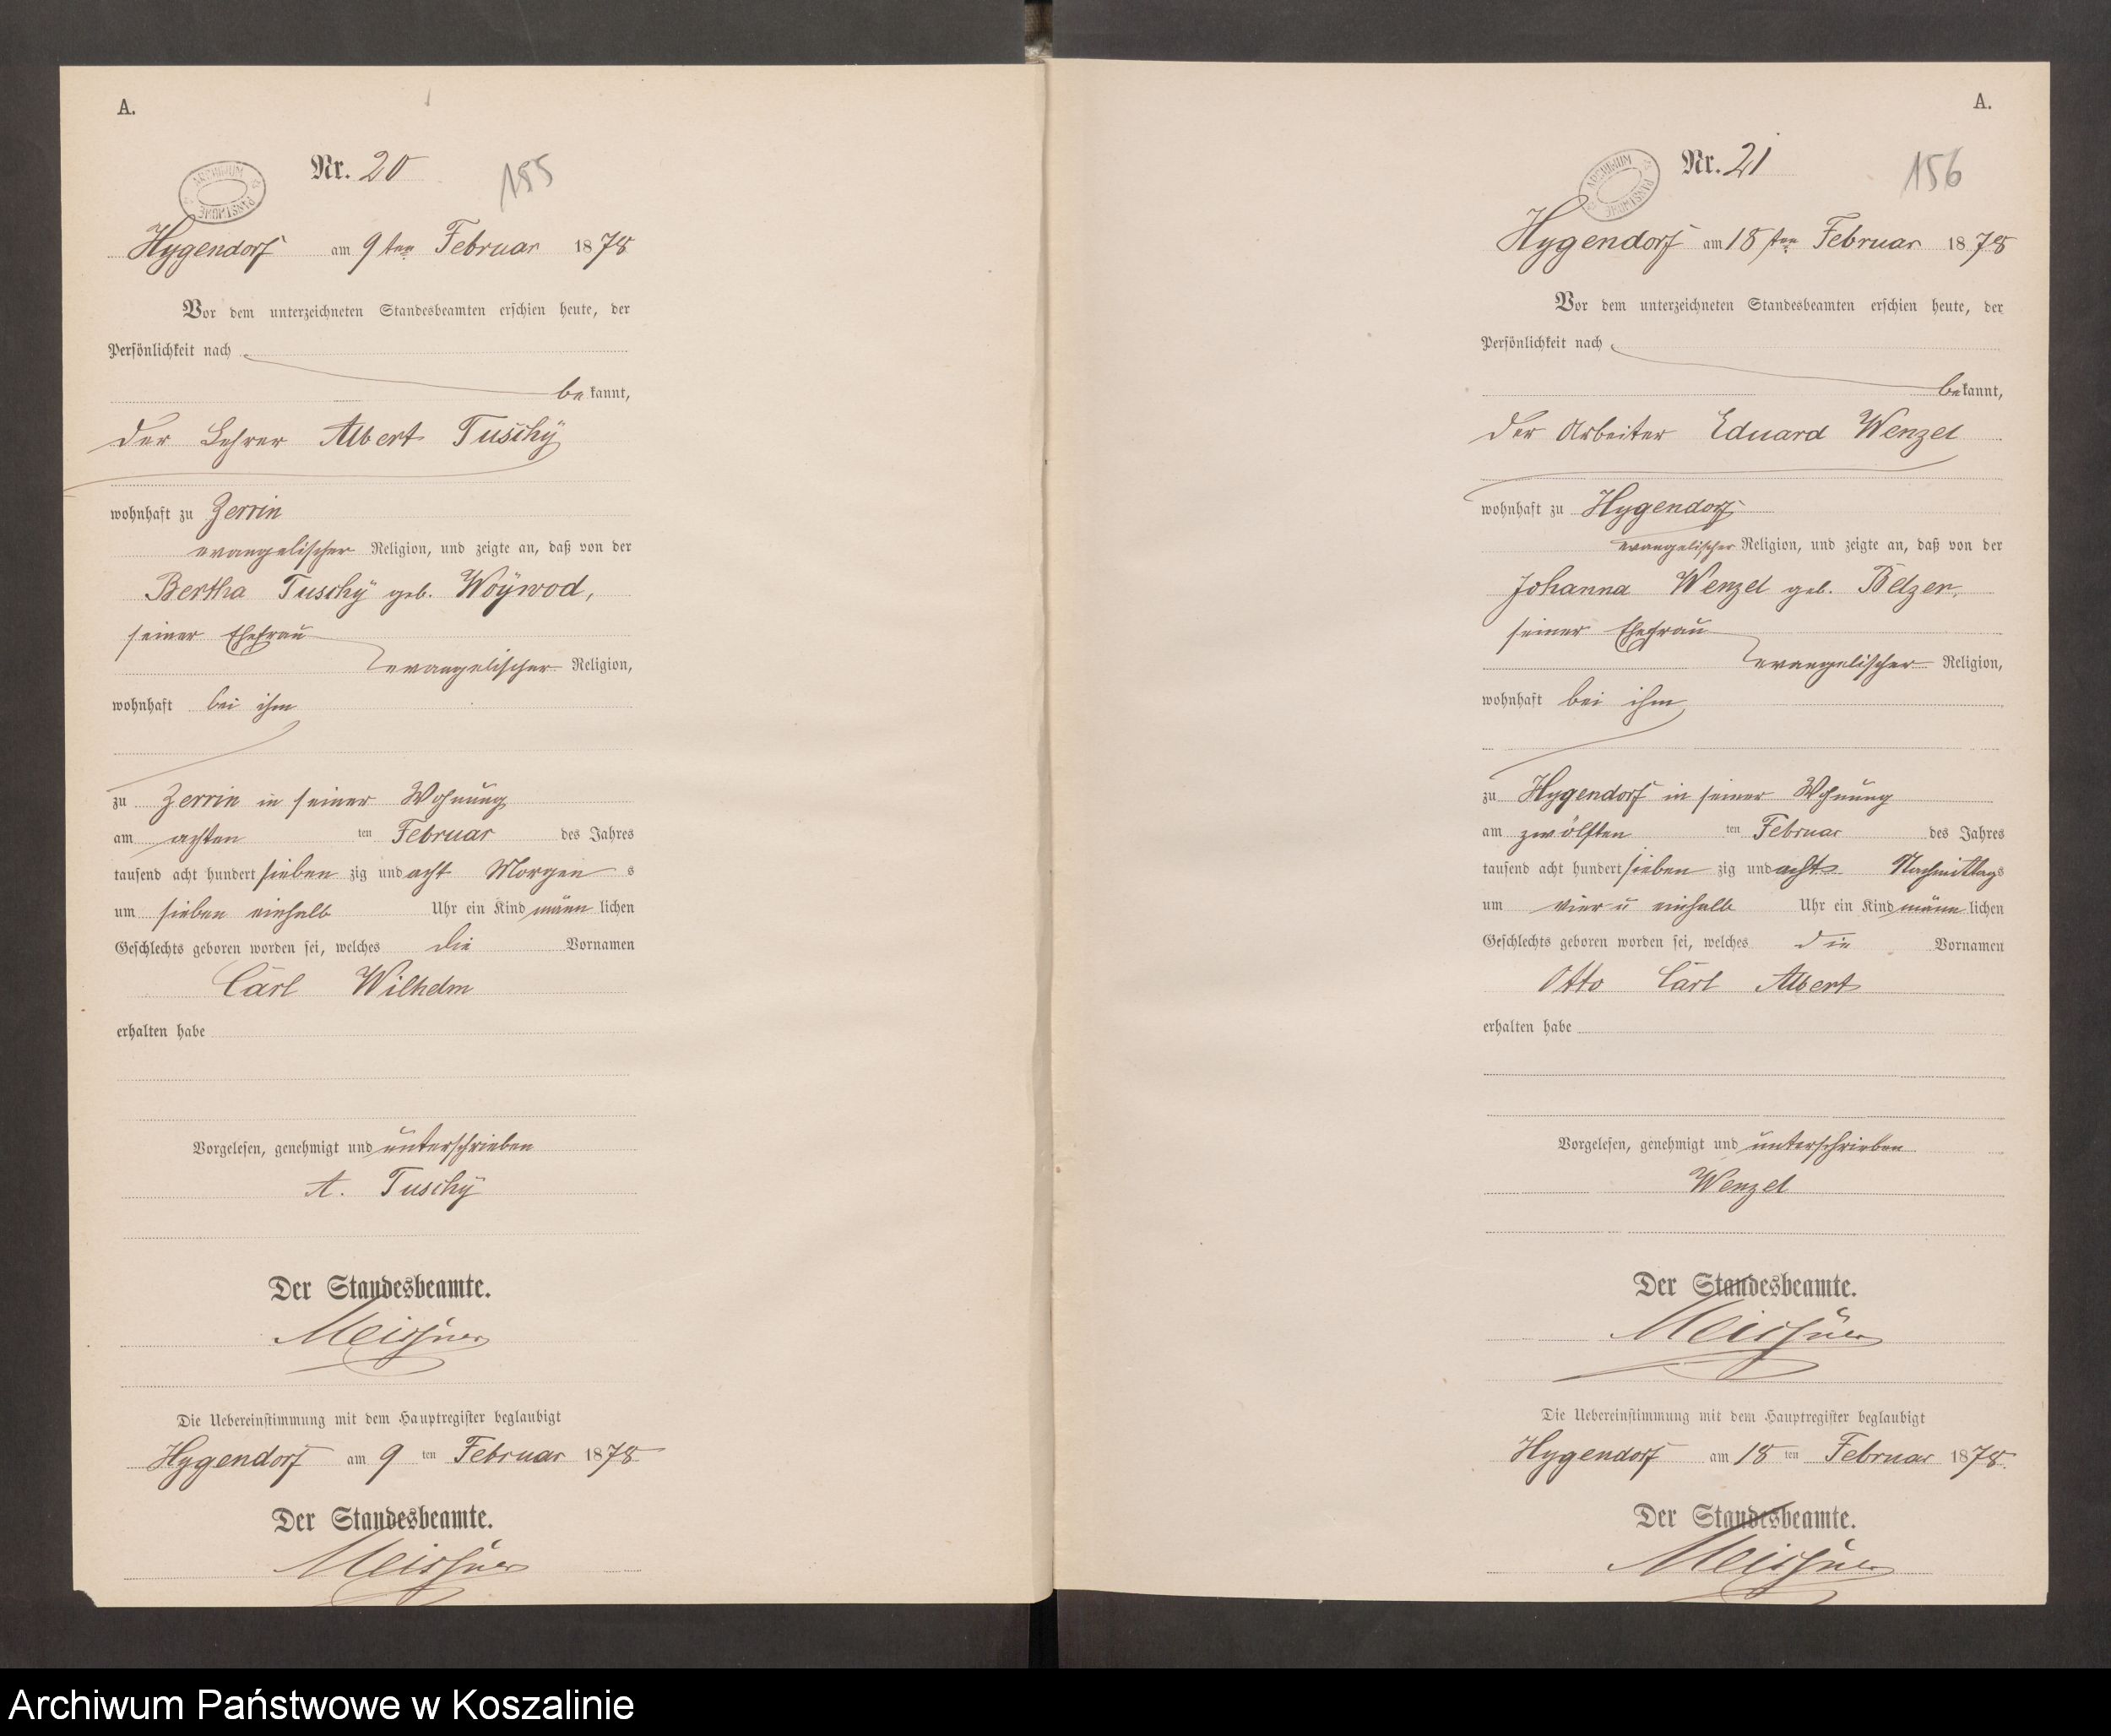 A.
Nr. 20
155
ARCHIWUM PAŃSTWOWE
Hygendorf am 9ten Februar 1878
Vor dem unterzeichneten Standesbeamten erschien heute, der
Persönlichkeit nach
bekannt,
der Lehrer Albert Tuschÿ
wohnhaft zu Zerrin
evangelischer Religion, und zeigte an, daß von der
Bertha Tuschÿ geb. Woÿwod,
seiner Ehefrau
evangelischer Religion,
wohnhaft bei ihm
zu Zerrin in seiner Wohnung
am achten ten Februar des Jahres
tausend acht hundert sieben zig und acht Morgens
um sieben einhalb Uhr ein Kind männlichen
Geschlechts geboren worden sei, welches die Vornamen
Carl Wilhelm
erhalten habe
Vorgelesen, genehmigt und unterschrieben
A. Tuschÿ
Der Standesbeamte.
Meissner
Die Uebereinstimmung mit dem Hauptregister beglaubigt
Hygendorf am 9ten Februar 1878
Der Standesbeamte.
Meissner
A.
Nr. 21
156
ARCHIWUM PAŃSTWOWE
Hygendorf am 18ten Februar 1878
Vor dem unterzeichneten Standesbeamten erschien heute, der
Persönlichkeit nach
bekannt,
der Arbeiter Eduard Wenzel
wohnhaft zu Hygendorf
evangelischer Religion, und zeigte an, daß von der
Johanna Wenzel geb. Belzer,
seiner Ehefrau
evangelischer Religion,
wohnhaft bei ihm,
zu Hygendorf in seiner Wohnung
am zwölften ten Februar des Jahres
tausend acht hundert sieben zig und acht Nachmittags
um vier u einhalb Uhr ein Kind männlichen
Geschlechts geboren worden sei, welches die Vornamen
Otto Carl Albert
erhalten habe
Vorgelesen, genehmigt und unterschrieben
Wenzel
Der Standesbeamte.
Meissner
Die Uebereinstimmung mit dem Hauptregister beglaubigt
Hygendorf am 18ten Februar 1878.
Der Standesbeamte.
Meissner
Archiwum Państwowe w Koszalinie